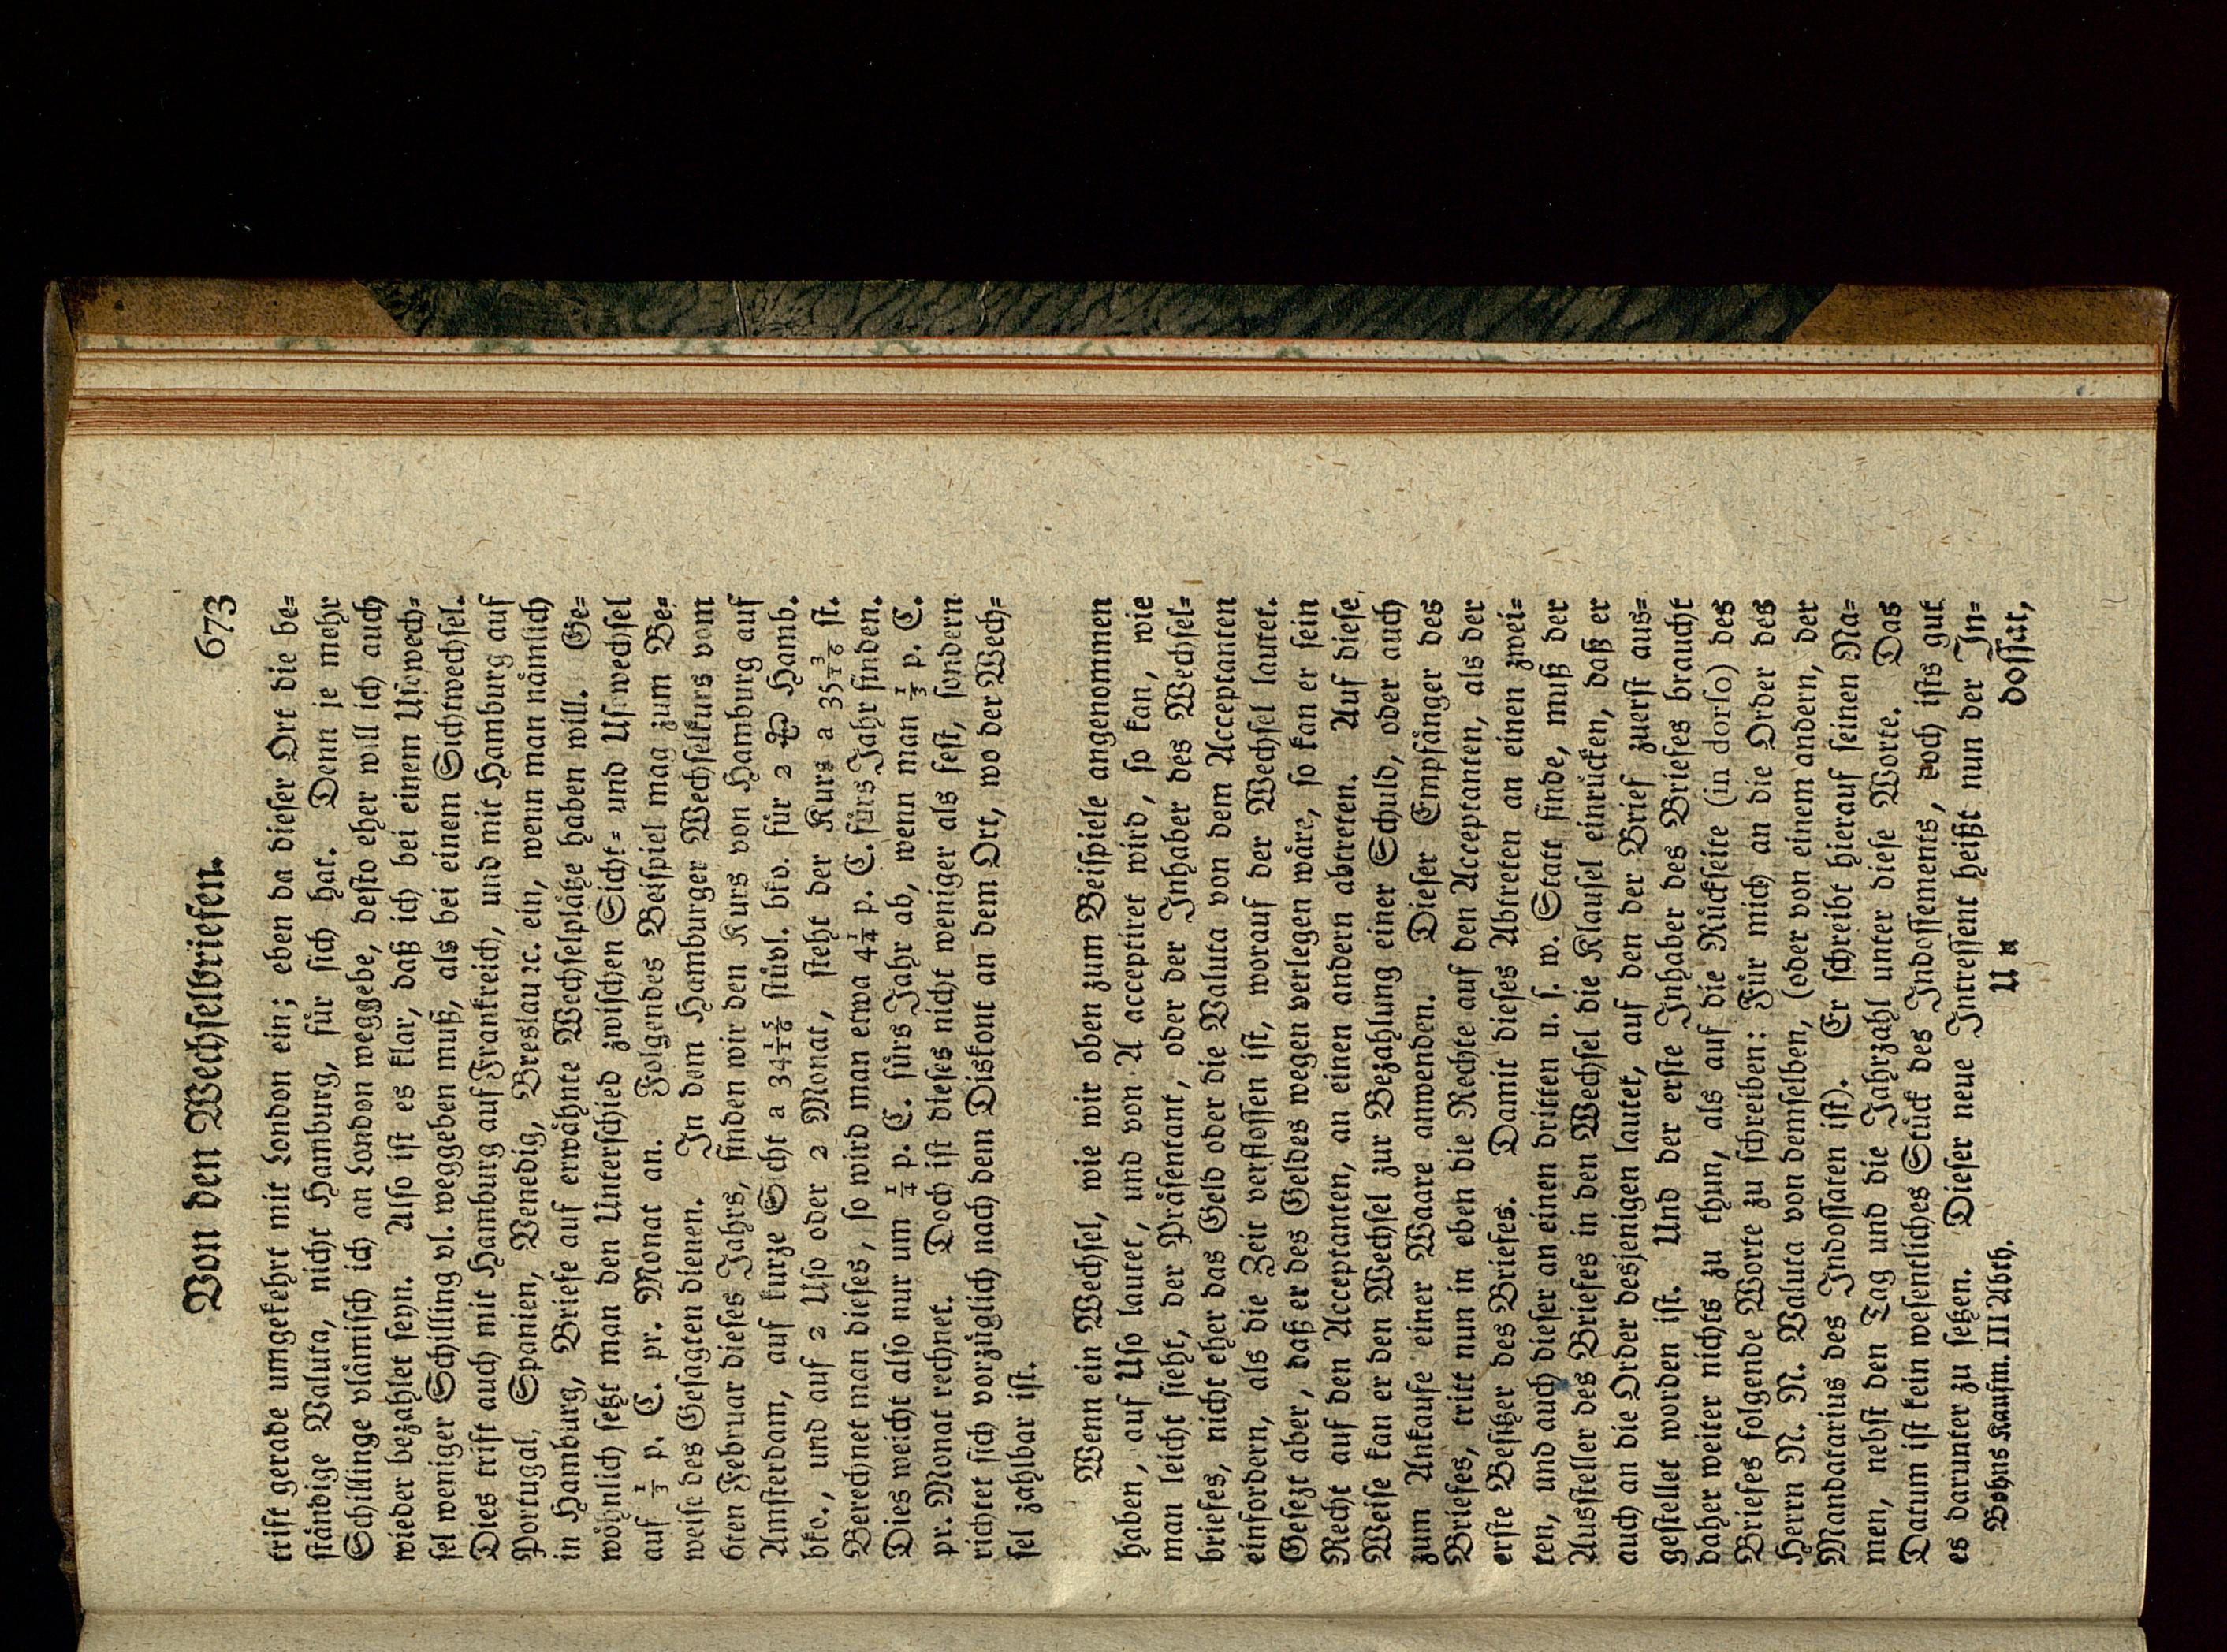 Von den Wechselbriefen. 673
trift gerade umgekehrt mit London ein; eben da dieser Ort die be=
ständige Valuta, nicht Hamburg, für sich hat. Denn je mehr
Schillinge vlämisch ich an London weggebe, desto eher will ich auch
wieder bezahlet seyn. Also ist es klar, daß ich bei einem Usowech=
sel weniger Schilling vl. weggeben muß, als bei einem Sichtwechsel.
Dies trift auch mit Hamburg auf Frankreich, und mit Hamburg auf
Portugal, Spanien, Venedig, Breslau ꝛc. ein, wenn man nämlich
in Hamburg, Briefe auf erwähnte Wechselplätze haben will. Ge=
wöhnlich setzt man den Unterschied zwischen Sicht= und Usowechsel
auf 1/3 p. C. pr. Monat an. Folgendes Beispiel mag zum Be=
weise des Gesagten dienen. In dem Hamburger Wechselkurs vom
6ten Februar dieses Jahrs, finden wir den Kurs von Hamburg auf
Amsterdam, auf kurze Sicht a 34 15/16 stüvl. bko. für 2 ℔ Hamb.
bko., und auf 2 Uso oder 2 Monat, steht der Kurs a 35 3/16 st.
Berechnet man dieses, so wird man etwa 4 1/4 p. C. fürs Jahr finden.
Dies weicht also nur um 1/4 p. C. fürs Jahr ab, wenn man 1/3 p. C.
pr. Monat rechnet. Doch ist dieses nicht weniger als fest, sondern
richtet sich vorzüglich nach dem Diskont an dem Ort, wo der Wech=
sel zahlbar ist.
Wenn ein Wechsel, wie wir oben zum Beispiele angenommen
haben, auf Uso lautet, und von A acceptiret wird, so kan, wie
man leicht sieht, der Präsentant, oder der Inhaber des Wechsel=
briefes, nicht eher das Geld oder die Valuta von dem Acceptanten
einfordern, als die Zeit verflossen ist, worauf der Wechsel lautet.
Gesezt aber, daß er des Geldes wegen verlegen wäre, so kan er sein
Recht auf den Acceptanten, an einen andern abtreten. Auf diese
Weise kan er den Wechsel zur Bezahlung einer Schuld, oder auch
zum Ankaufe einer Waare anwenden. Dieser Empfänger des
Briefes, tritt nun in eben die Rechte auf den Acceptanten, als der
erste Besitzer des Briefes. Damit dieses Abtreten an einen zwei=
ten, und auch dieser an einen dritten u. s. w. Statt finde, muß der
Aussteller des Briefes in den Wechsel die Klausel einrücken, daß er
auch an die Order desjenigen lautet, auf den der Brief zuerst aus=
gestellet worden ist. Und der erste Inhaber des Briefes braucht
daher weiter nichts zu thun, als auf die Rückseite (in dorso) des
Briefes folgende Worte zu schreiben: Für mich an die Order des
Herrn N. N. Valuta von demselben, (oder von einem andern, der
Mandatarius des Indossaten ist). Er schreibt hierauf seinen Na=
men, nebst den Tag und die Jahrzahl unter diese Worte. Das
Darum ist kein wesentliches Stück des Indossements, doch ists gut
es darunter zu setzen. Dieser neue Intressent heißt nun der In=
Bohns Kaufm. III Abth. U u dossat,